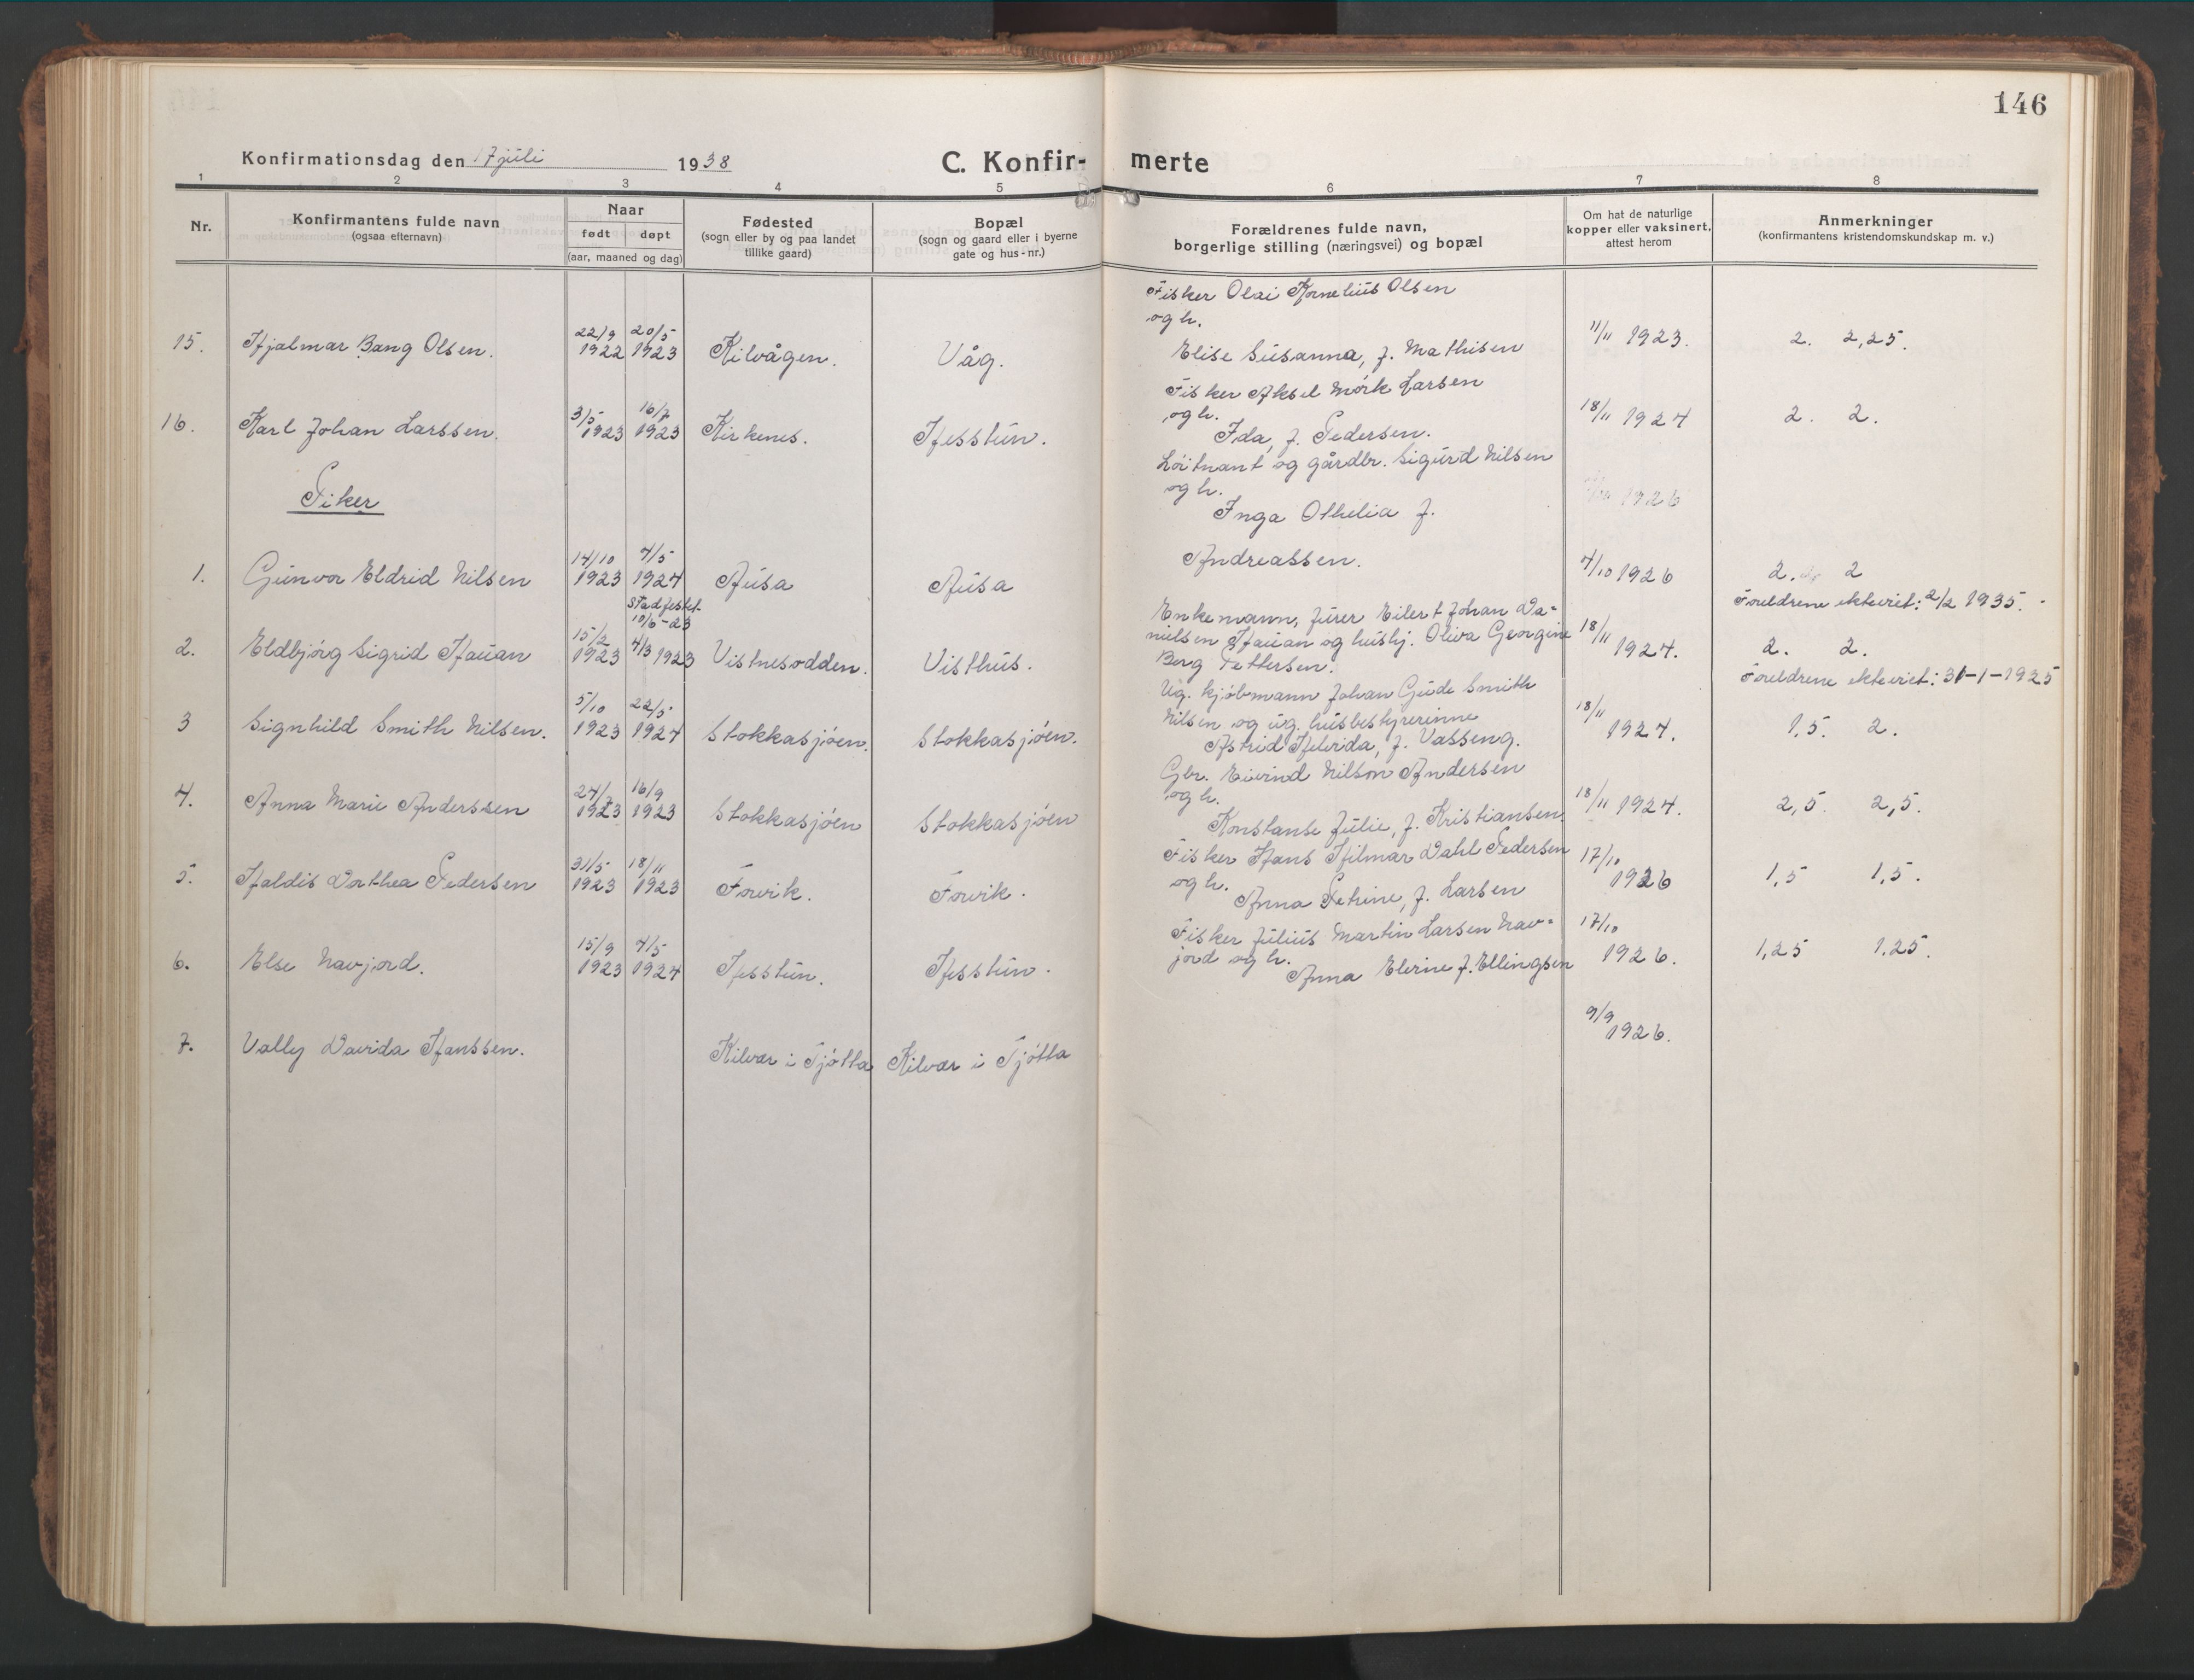 146
Konfirmationsdag den 17 juli 1938
C. Konfir-merte
1 2 3 4 5 6 7 8
Nr.
Konfirmantens fulde navn
(ogsaa efternavn)
Naar
født døpt
(aar, maaned og dag)
Fødested
(sogn eller by og paa landet
tillike gaard)
Bopæl
(sogn og gaard eller i byerne
gate og hus-nr.)
Forældrenes fulde navn,
borgerlige stilling (næringsvei) og bopæl
Om hat de naturlige
kopper eller vaksinert,
attest herom
Anmerkninger
(konfirmantens kristendomskundskap m. v.)
Fisker Olai Kornelius Olsen
og h.
15. Hjalmar Bang Olsen. 22/9 1922 20/5 1923 Kilvågen. Våg. Elise Susanna, f. Mathisen 11/11 1923. 2. 2,25.
Fisker Aksel Mørk Larsen
og h.
16. Karl Johan Larssen. 3/5 1923 16/7 1923 Kirkenes. Hesstun. Ida, f. Pedersen. 18/11 1924 2. 2.
Løitnant og gårdbr. Sigurd Nilsen
og h.
Piker
Inga Othelia f. 1926
Andreassen.
1. Gunvor Eldrid Nilsen 14/10 1923 4/5 1924 Ausa Ausa 4/10 1926 2. 2
Stadfestet
10/6-23
Foreldrene ekteviet: 2/2 1935.
Enkemann, furer Eilert Johan Da=
nielsen Hauan og hushj. Oliva Georgine
Berg Pettersen.
2. Eldbjørg Sigrid Hauan 15/2 1923 4/3 1923 Vistnesodden. Visthus. 18/11 1924. 2. 2.
Foreldrene ekteviet: 31-1-1925
Ug. kjøbmann Johan Gude Smith
Nilsen og ug. husbestyrerinne
Astrid Helvida, f. Vasseng.
3 Signhild Smith Nilsen. 5/10 1923 22/5 1924 Stokkasjøen. Stokkasjøen. 18/11 1924. 1,5. 2.
Gbr. Eivind Nilson Andersen
og h.
Konstanse Julie, f. Kristiansen
4. Anna Marie Anderssen 24/7 1923 16/9 1923 Stokkasjøen Stokkasjøen 18/11 1924. 2,5. 2,5.
Fisker Hans Hilmar Dahl Pedersen
og h.
Anna Petrine, f. Larsen
5. Haldis Dorthea Pedersen 31/5 1923 18/11 1923 Forvik. Forvik. 17/10 1926 1,5 1,5.
Fisker Julius Martin Larsen Nav=
jord og h.
Anna Elerine f. Ellingsen
6. Else Navjord. 15/9 1923 4/5 1924 Hesstun. Hesstun. 17/10 1926. 1,25 1,25.
7. Vally Davida Hanssen. Kilvær i Tjøtta Kilvær i Tjøtta 9/9 1926.